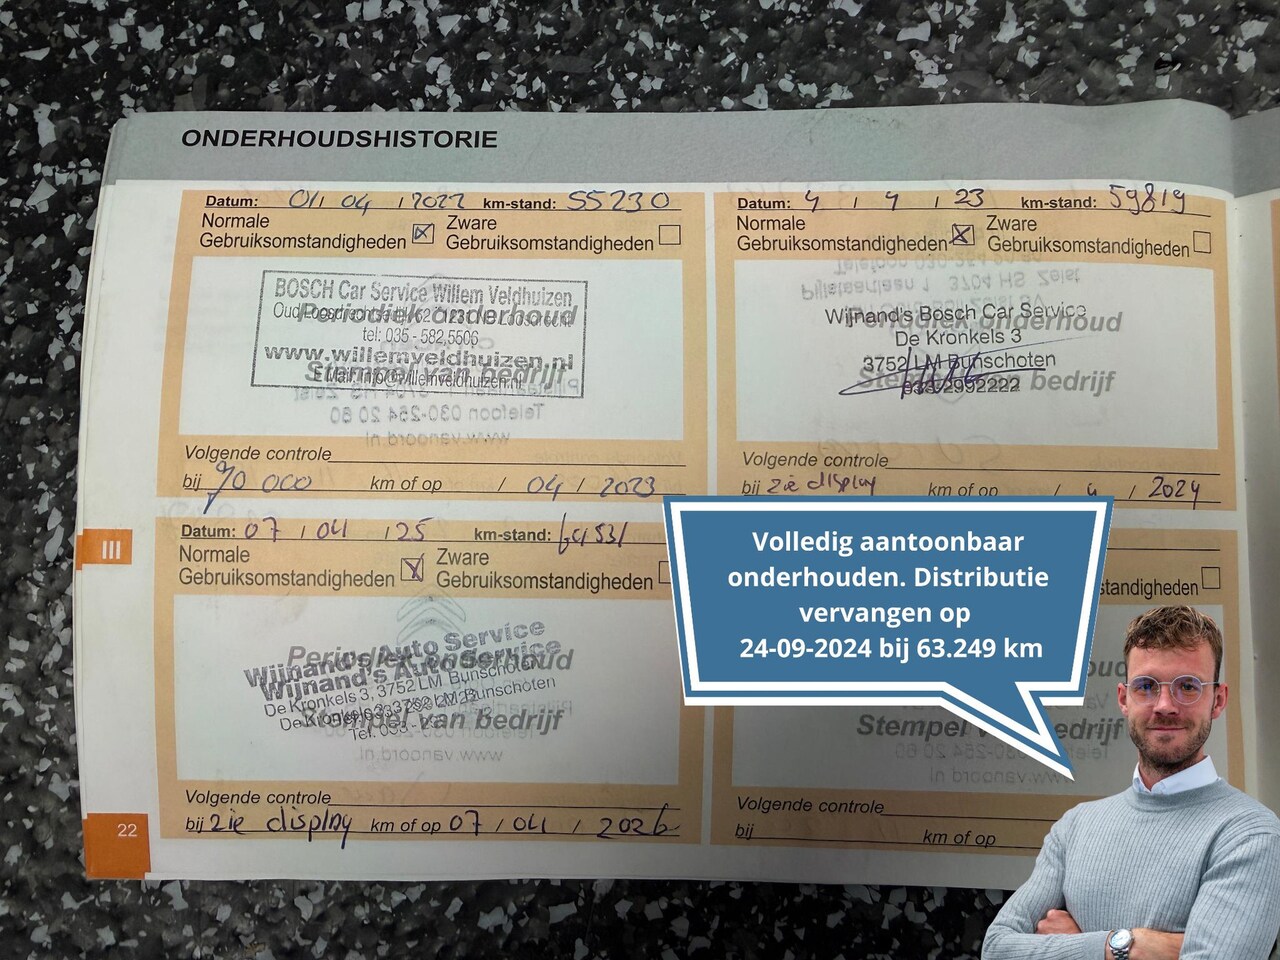 ONDERHOUDSHISTORIE
Datum: 01 / 04 / 2022 km-stand: 55230
Normale Gebruiksomstandigheden Zware Gebruiksomstandigheden
BOSCH Car Service Willem Veldhuizen
tel: 035 - 582 5506
www.willemveldhuizen.nl
E-Mail: info@willemveldhuizen.nl
Periodiek onderhoud
Stempel van bedrijf
Volgende controle
bij 70 000 km of op / 04 / 2023
Datum: 4 / 4 / 23 km-stand: 59819
Normale Gebruiksomstandigheden Zware Gebruiksomstandigheden
Wijnand's Bosch Car Service
De Kronkels 3
3752 LM Bunschoten
033-2992222
Periodiek onderhoud
Stempel van bedrijf
Volgende controle
bij zie display km of op / 4 / 2024
Datum: 07 / 04 / 25 km-stand:
Normale Gebruiksomstandigheden Zware Gebruiksomstandigheden
Wijnand's Auto Service
Wijnand's Auto Service
De Kronkels 3, 3752 LM Bunschoten
De Kronkels 3, 3752 LM Bunschoten
Tel. 033
Periodiek onderhoud
Stempel van bedrijf
Volgende controle
bij zie display km of op 07 / 04 / 2026
standigheden
Stempel bedrijf
Volgende controle
bij km of op
III
22
Volledig aantoonbaar
onderhouden. Distributie
vervangen op
24-09-2024 bij 63.249 km